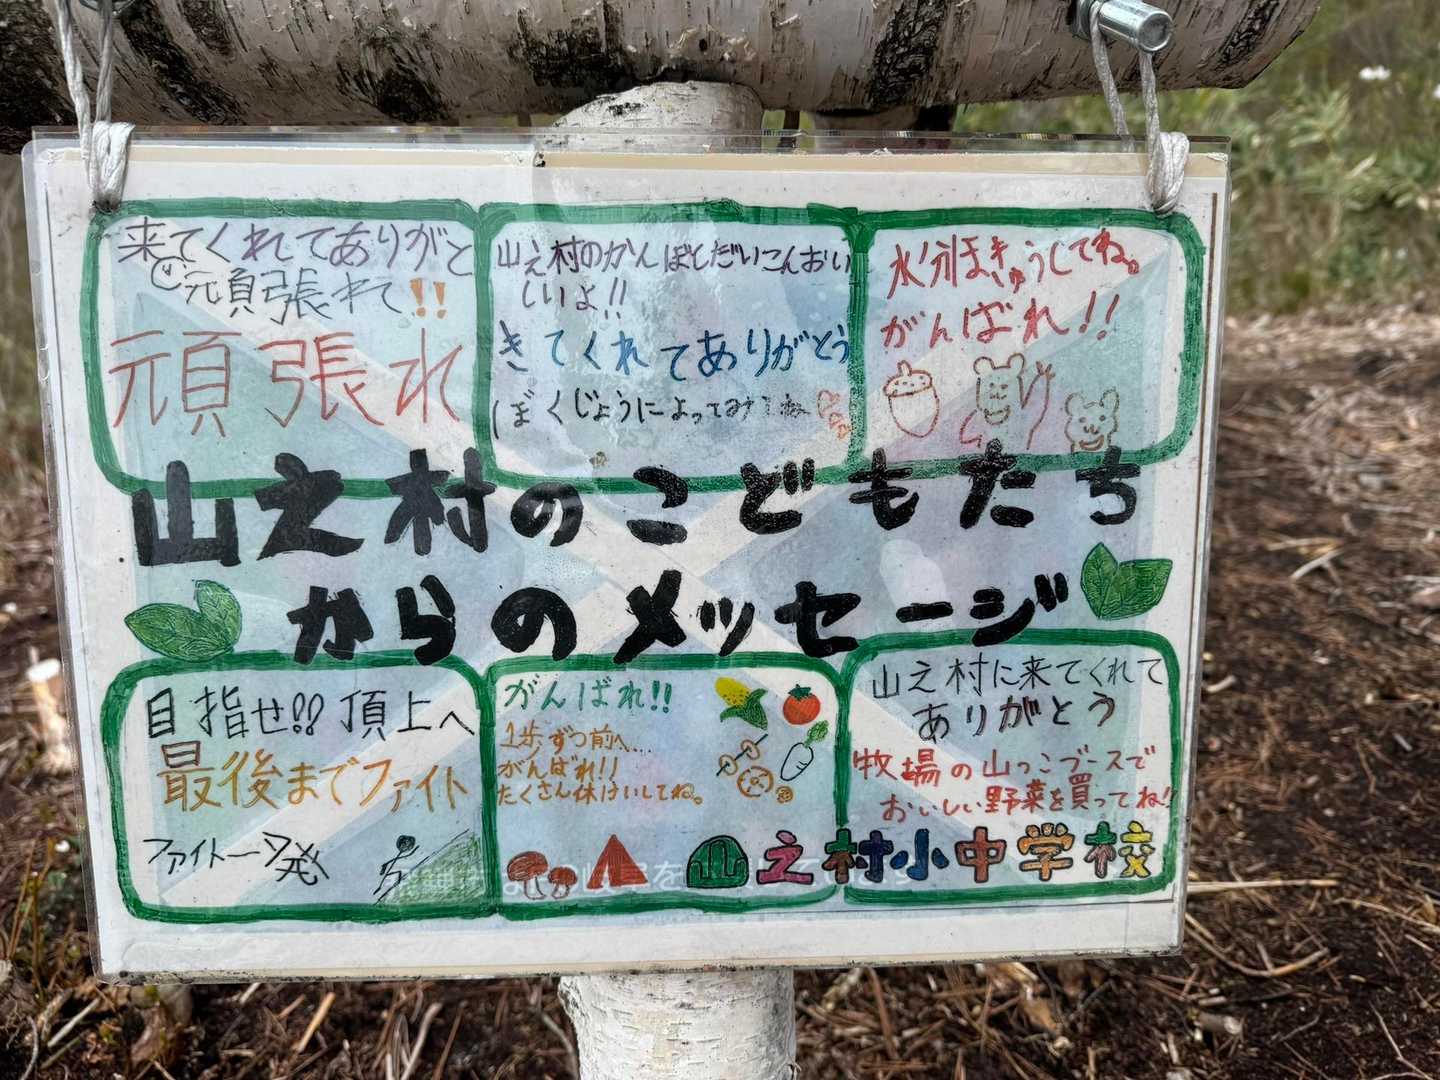 来てくれてありがと
頑張れて!!
頑張れ
山之村のかんぼしだいこんおい
しいよ!!
きてくれてありがとう
ぼくじょうによってみてね
水分ほきゅうしてね。
がんばれ!!
山之村のこどもたち
からのメッセージ
目指せ!!頂上へ
最後までファイト
ファイトー発
がんばれ!!
1歩ずつ前へ...
がんばれ!!
たくさん休けいしてね。
山之村に来てくれて
ありがとう
牧場の山っこブースで
おいしい野菜を買ってね!!
山之村小中学校